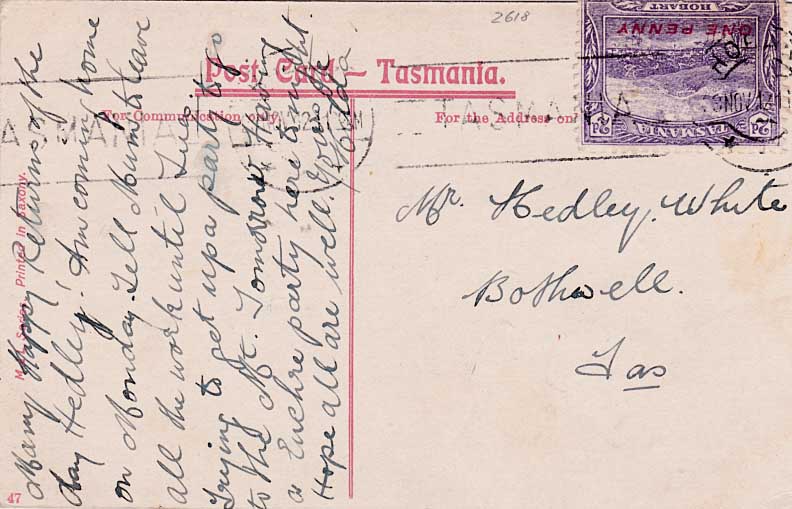 2618
HOBART
ONE PENNY
TASMANIA
2d
2d
NOV 12
TASMANIA
Post Card – Tasmania.
For Communication only.
For the Address on
Many Happy Returns of the
day Hedley. Am coming home
on Monday. Tell Mum to leave
all the work until Tues.
Trying to get up a party to go
to the Mt. Tomorrow. Having
a Euchre party here to-night
Hope all are well. Love
Mr. Hedley. White
Bothwell.
Tas
Printed in Saxony.
47